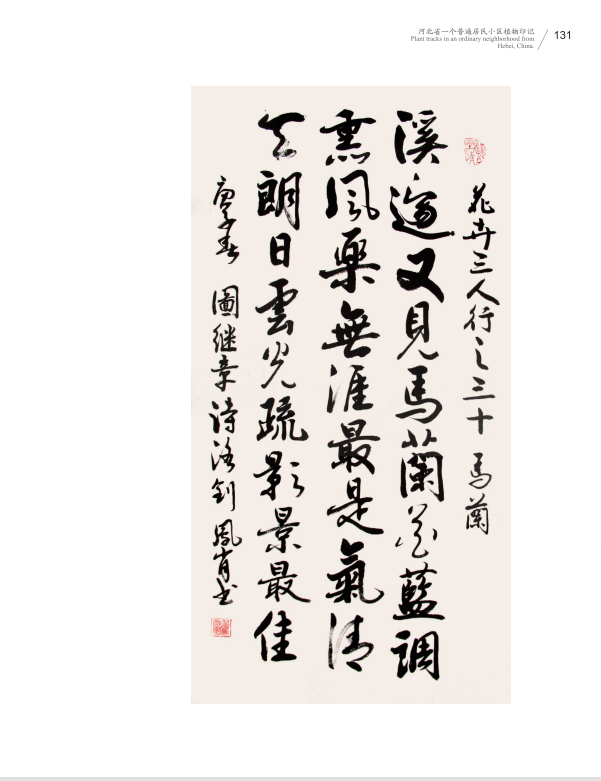 河北省一个普通居民小区植物印记
Plant tracks in an ordinary neighborhood from
Hebei, China.
131
花卉三人行之三十 馬蘭
溪邊又見馬蘭花藍調
熏風樂無涯最是氣清
天朗日雲光疏影景最佳
庚子春 圖继章詩洛钊鳳书